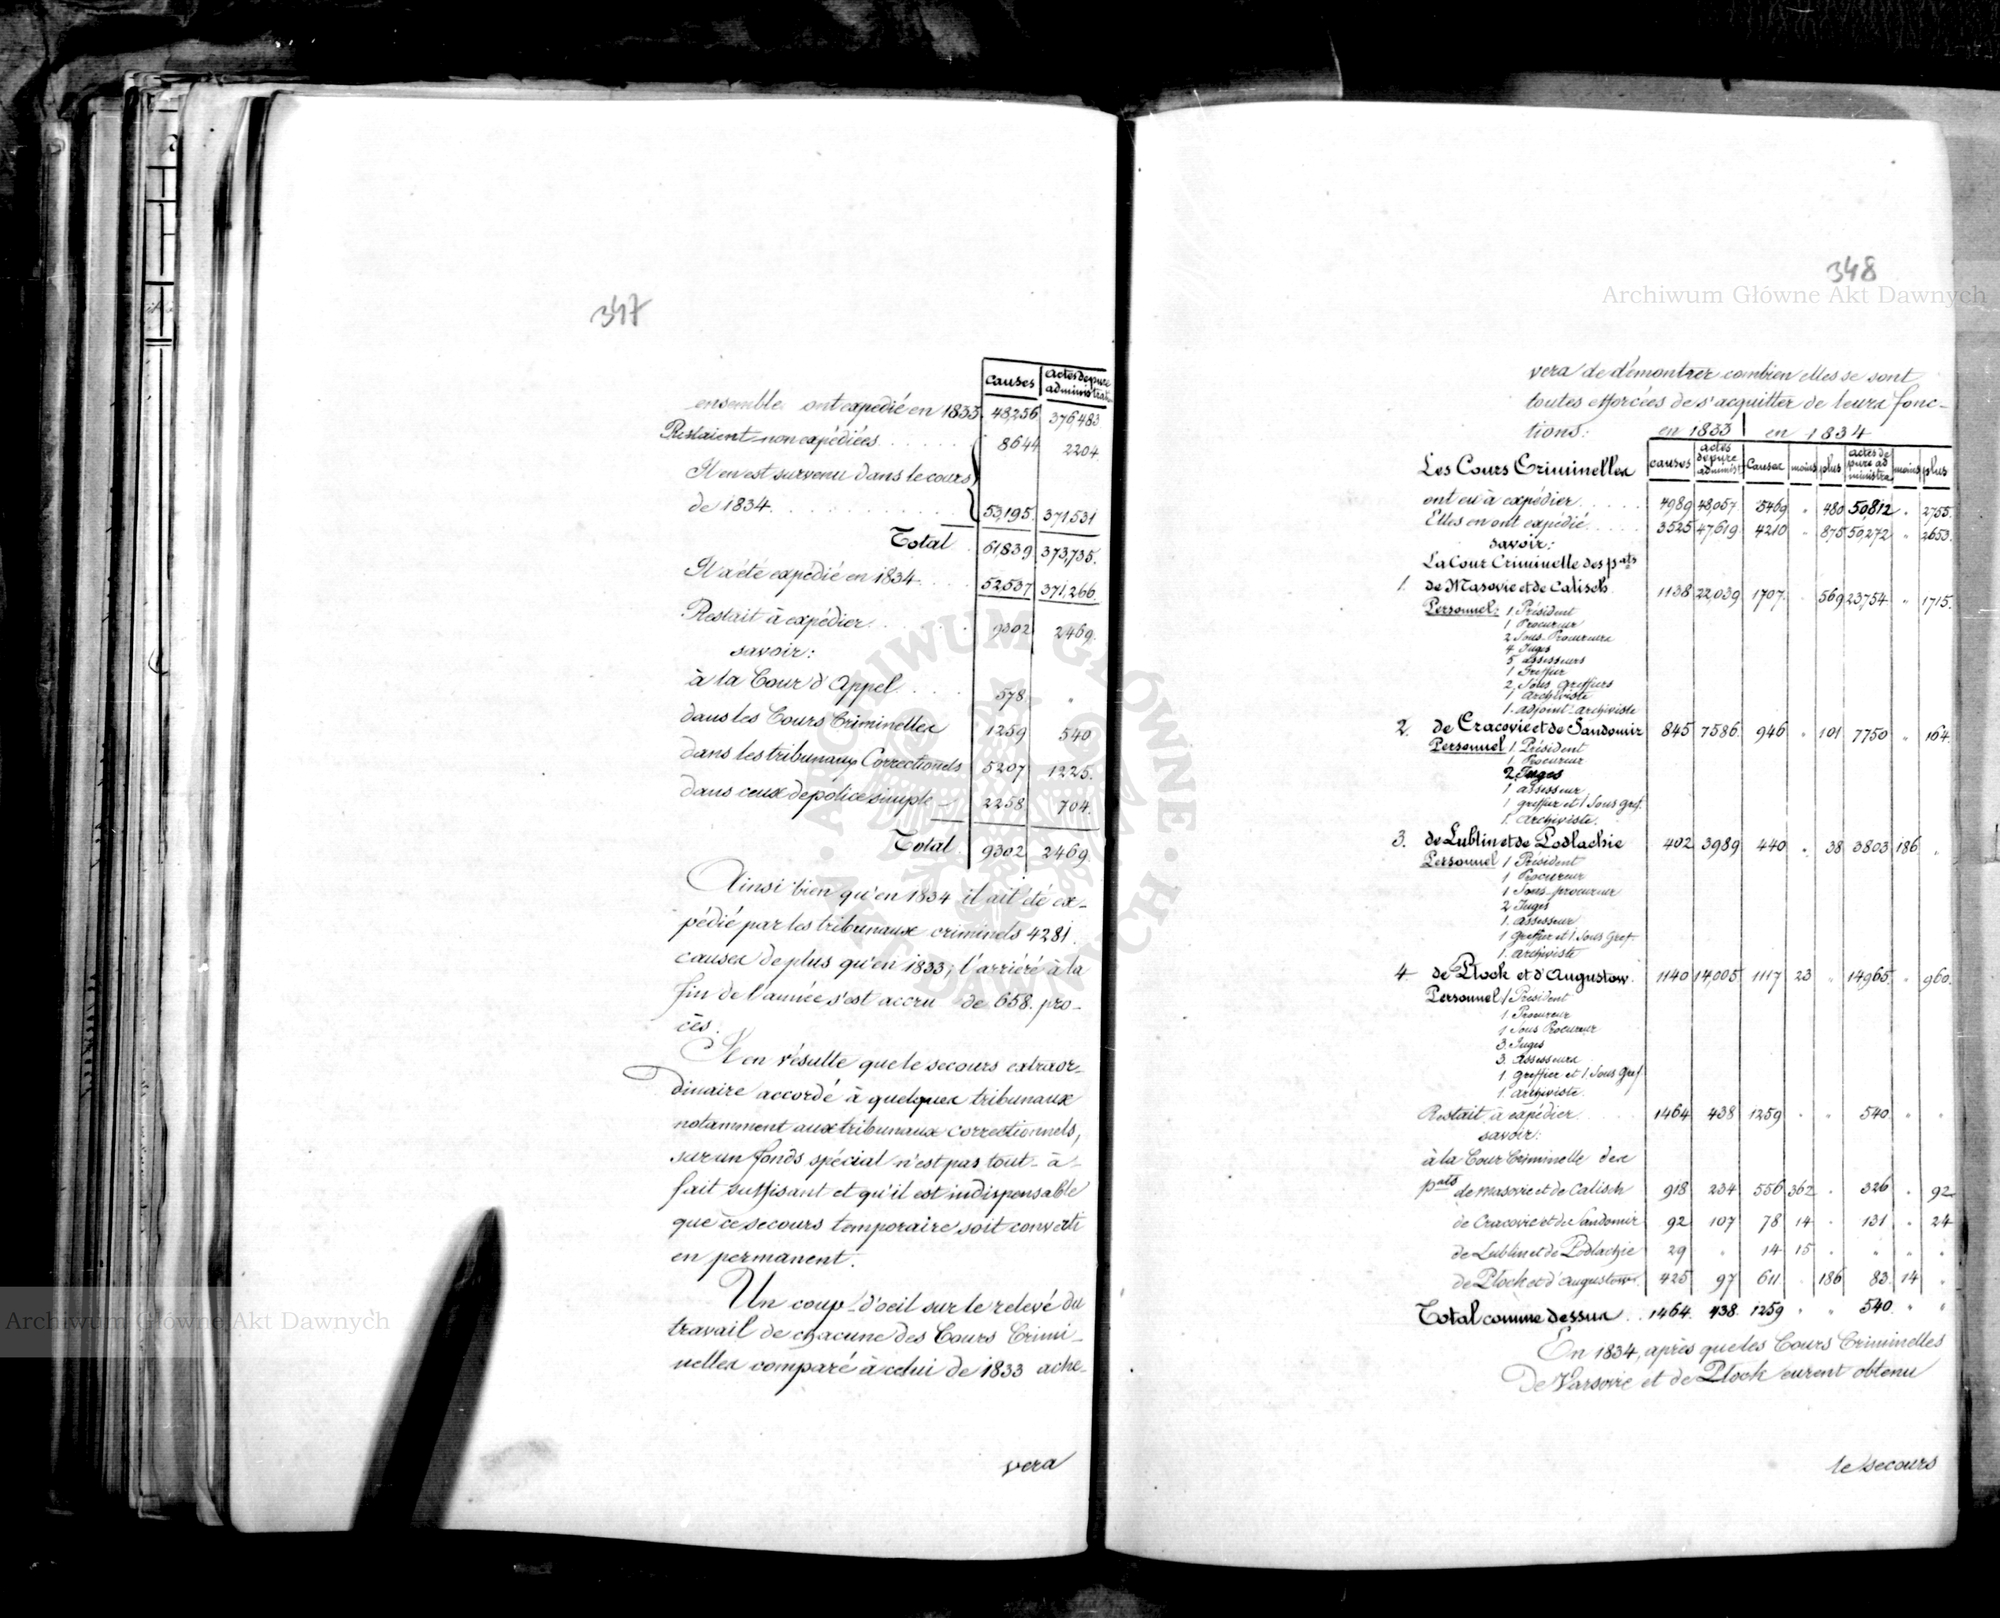 347
causes | actes de pure administration
ensemble ont expédié en 1833 | 48,256 | 376,483
Restaient non expédiées . . . . . | 8644 | 2204.
Il en est survenu dans le cours
de 1834 . . . . . . . . . . . | 53,195. | 371,531
Total . | 61839 | 373,735.
Il a été expédié en 1834 . . . | 52,537 | 371,266.
Restait à expédier . . . . . | 9302 | 2469.
savoir:
à la Cour d'Appel . . . | 578 | "
dans les Cours Criminelles | 1259 | 540
dans les tribunaux Correctionels | 5207 | 1225.
dans ceux de police simple | 2258 | 704.
Total . | 9302 | 2469
Ainsi bien qu'en 1834 il ait été ex-
pédié par les tribunaux criminels 4281.
causes de plus qu'en 1833; l'arriéré à la
fin de l'année s'est accru de 658. pro-
cès.
Il en résulte que le secours extraor-
dinaire accordé à quelques tribunaux
notamment aux tribunaux correctionnels,
sur un fonds spécial n'est pas tout-à-
fait suffisant et qu'il est indispensable
que ce secours temporaire soit converti
en permanent.
Un coup-d'oeil sur le relevé du
travail de chacune des Cours Crimi-
nelles comparé à celui de 1833 ache-
vera
348
vera de démontrer combien elles se sont
toutes efforcées de s'acquitter de leurs fonc-
tions: | en 1833 | en 1834
Les Cours Criminelles | causes | actes de pure administ | Causes | moins | plus | actes de pure ad ministra | moins | plus
ont eu à expédier . . . . | 4989 | 48,057 | 5469 | " | 480 | 50812 | " | 2755.
Elles en ont expédié . . . . | 3525 | 47,619 | 4210 | " | 875 | 50,272 | " | 2653.
savoir:
La Cour Criminelle des pats
1. de Masovie et de Calisch | 1138 | 22,039 | 1707. | " | 569 | 23,754 | " | 1715.
Personnel: 1 Président
1 Procureur
2 Sous-Procureurs
4 Juges
5 assesseurs
1 Greffier
2 Sous greffiers
1 archiviste
1. adjoint-archiviste
2. de Cracovie et de Sandomir | 845 | 7586. | 946 | " | 101 | 7750 | " | 164.
Personnel 1. Président
1 Procureur
2 Juges
1 assesseur
1 greffier et 1 Sous gref.
1. archiviste.
3. de Lublin et de Podlachie | 402 | 3989 | 440 | " | 38 | 3803 | 186 | "
Personnel 1 Président
1 Procureur
1 Sous-procureur
2 Juges
1. assesseur
1 greffier et 1. Sous Gref.
1. archiviste
4. de Plock et d'Augustow. | 1140 | 14,005 | 1117 | 23 | " | 14965. | " | 960.
Personnel 1 Président
1 Procureur
1 Sous Procureur
3. Juges
3. assesseurs
1 greffier et 1. Sous Gref
1. archiviste.
Restait à expédier . . . . | 1464 | 438 | 1259 | " | " | 540 | " | "
savoir:
à la Cour Criminelle des
pats de Masovie et de Calisch | 918 | 234 | 556 | 362 | " | 326 | " | 92
de Cracovie et de Sandomir | 92 | 107 | 78 | 14 | " | 131 | " | 24
de Lublin et de Podlachie | 29 | " | 14 | 15 | " | " | " | "
de Plock et d'Augustow. | 425 | 97 | 611 | " | 186 | 83. | 14 | "
Total comme dessus . . | 1464. | 438. | 1259 | " | " | 540 | " | "
En 1834, après que les Cours Criminelles
de Varsovie et de Plock eurent obtenu
le secours
Archiwum Główne Akt Dawnych
Archiwum Główne Akt Dawnych
ARCHIWUM GŁÓWNE AKT DAWNYCH